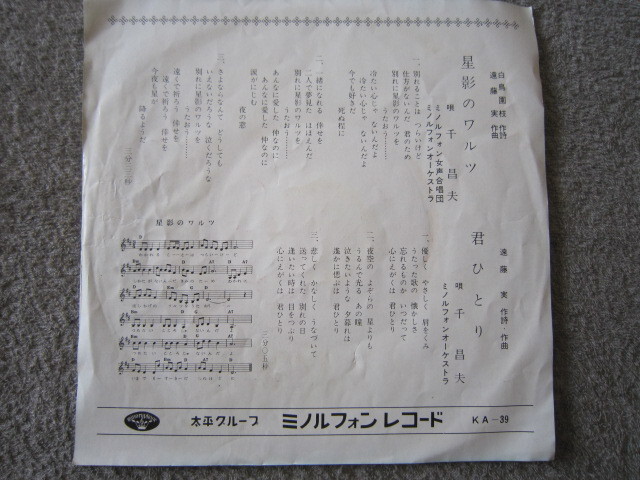 星影のワルツ
白鳥園枝 作詩
遠藤 実 作曲
唄 千昌夫
ミノルフォン女声合唱団
ミノルフォンオーケストラ
一、別れることは つらいけど
仕方がないんだ 君のため
別れに星影のワルツを
うたおう……
冷たい心じゃ ないんだよ
冷たい心じゃ ないんだよ
今でも好きだ 死ぬ程に
二、一緒になれる 倖せを
二人で夢見た ほほえんだ
別れに星影のワルツを
うたおう……
あんなに愛した 仲なのに
あんなに愛した 仲なのに
涙がにじむ 夜の窓
三、さよならなんて どうしても
いえないだろうな 泣くだろうな
別れに星影のワルツを
うたおう……
遠くで祈ろう 倖せを
遠くで祈ろう 倖せを
今夜も星が 降るようだ
君ひとり
遠藤 実 作詩・作曲
唄 千昌夫
ミノルフォンオーケストラ
一、優しく やさしく 肩をくみ
うたった歌の 懐かしさ
忘れるものか いつだって
心にえがくは 君ひとり
二、夜空の よぞらの 星よりも
うるんで光る あの瞳
泣きたいような 夕暮れは
遥かに想ぶは 君ひとり
三、悲しく かなしく うなづいて
送ってくれた 別れの日
逢いたい時は 目をつぶり
心にえがくは 君ひとり
星影のワルツ
太平グループ ミノルフォン レコード KA-39